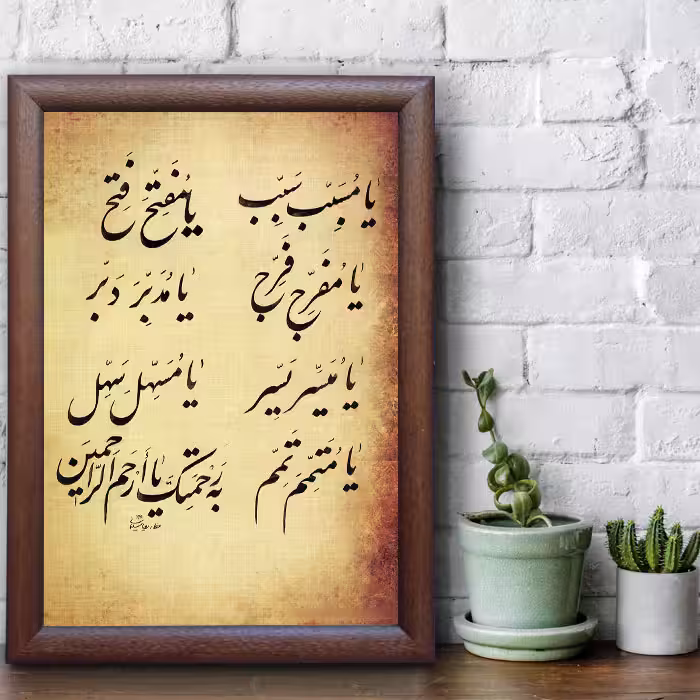 یا مُسَبِّب سَبِّب یا مُفَتِّحُ فَتِّح
یا مُفَرِّج فَرِّج یا مُدَبِّرَ دَبِّر
یا مُیَسِّر یَسِّر یا مُسَهِّل سَهِّل
یا مُتَمِّمَ تَمِّم بِه رَحمَتِکَ یا أَرحَمَ الرّاحِمینَ